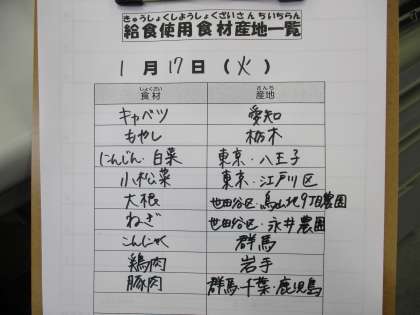 きゅうしょくしようしょくざいさんちいちらん
給食使用食材産地一覧
1月17日(火)
しょくざい さんち
食材 産地
キャベツ 愛知
もやし 栃木
にんじん・白菜 東京・八王子
小松菜 東京・江戸川区
大根 世田谷区・烏山地9丁目農園
ねぎ 世田谷区・永井農園
こんにゃく 群馬
鶏肉 岩手
豚肉 群馬・千葉・鹿児島